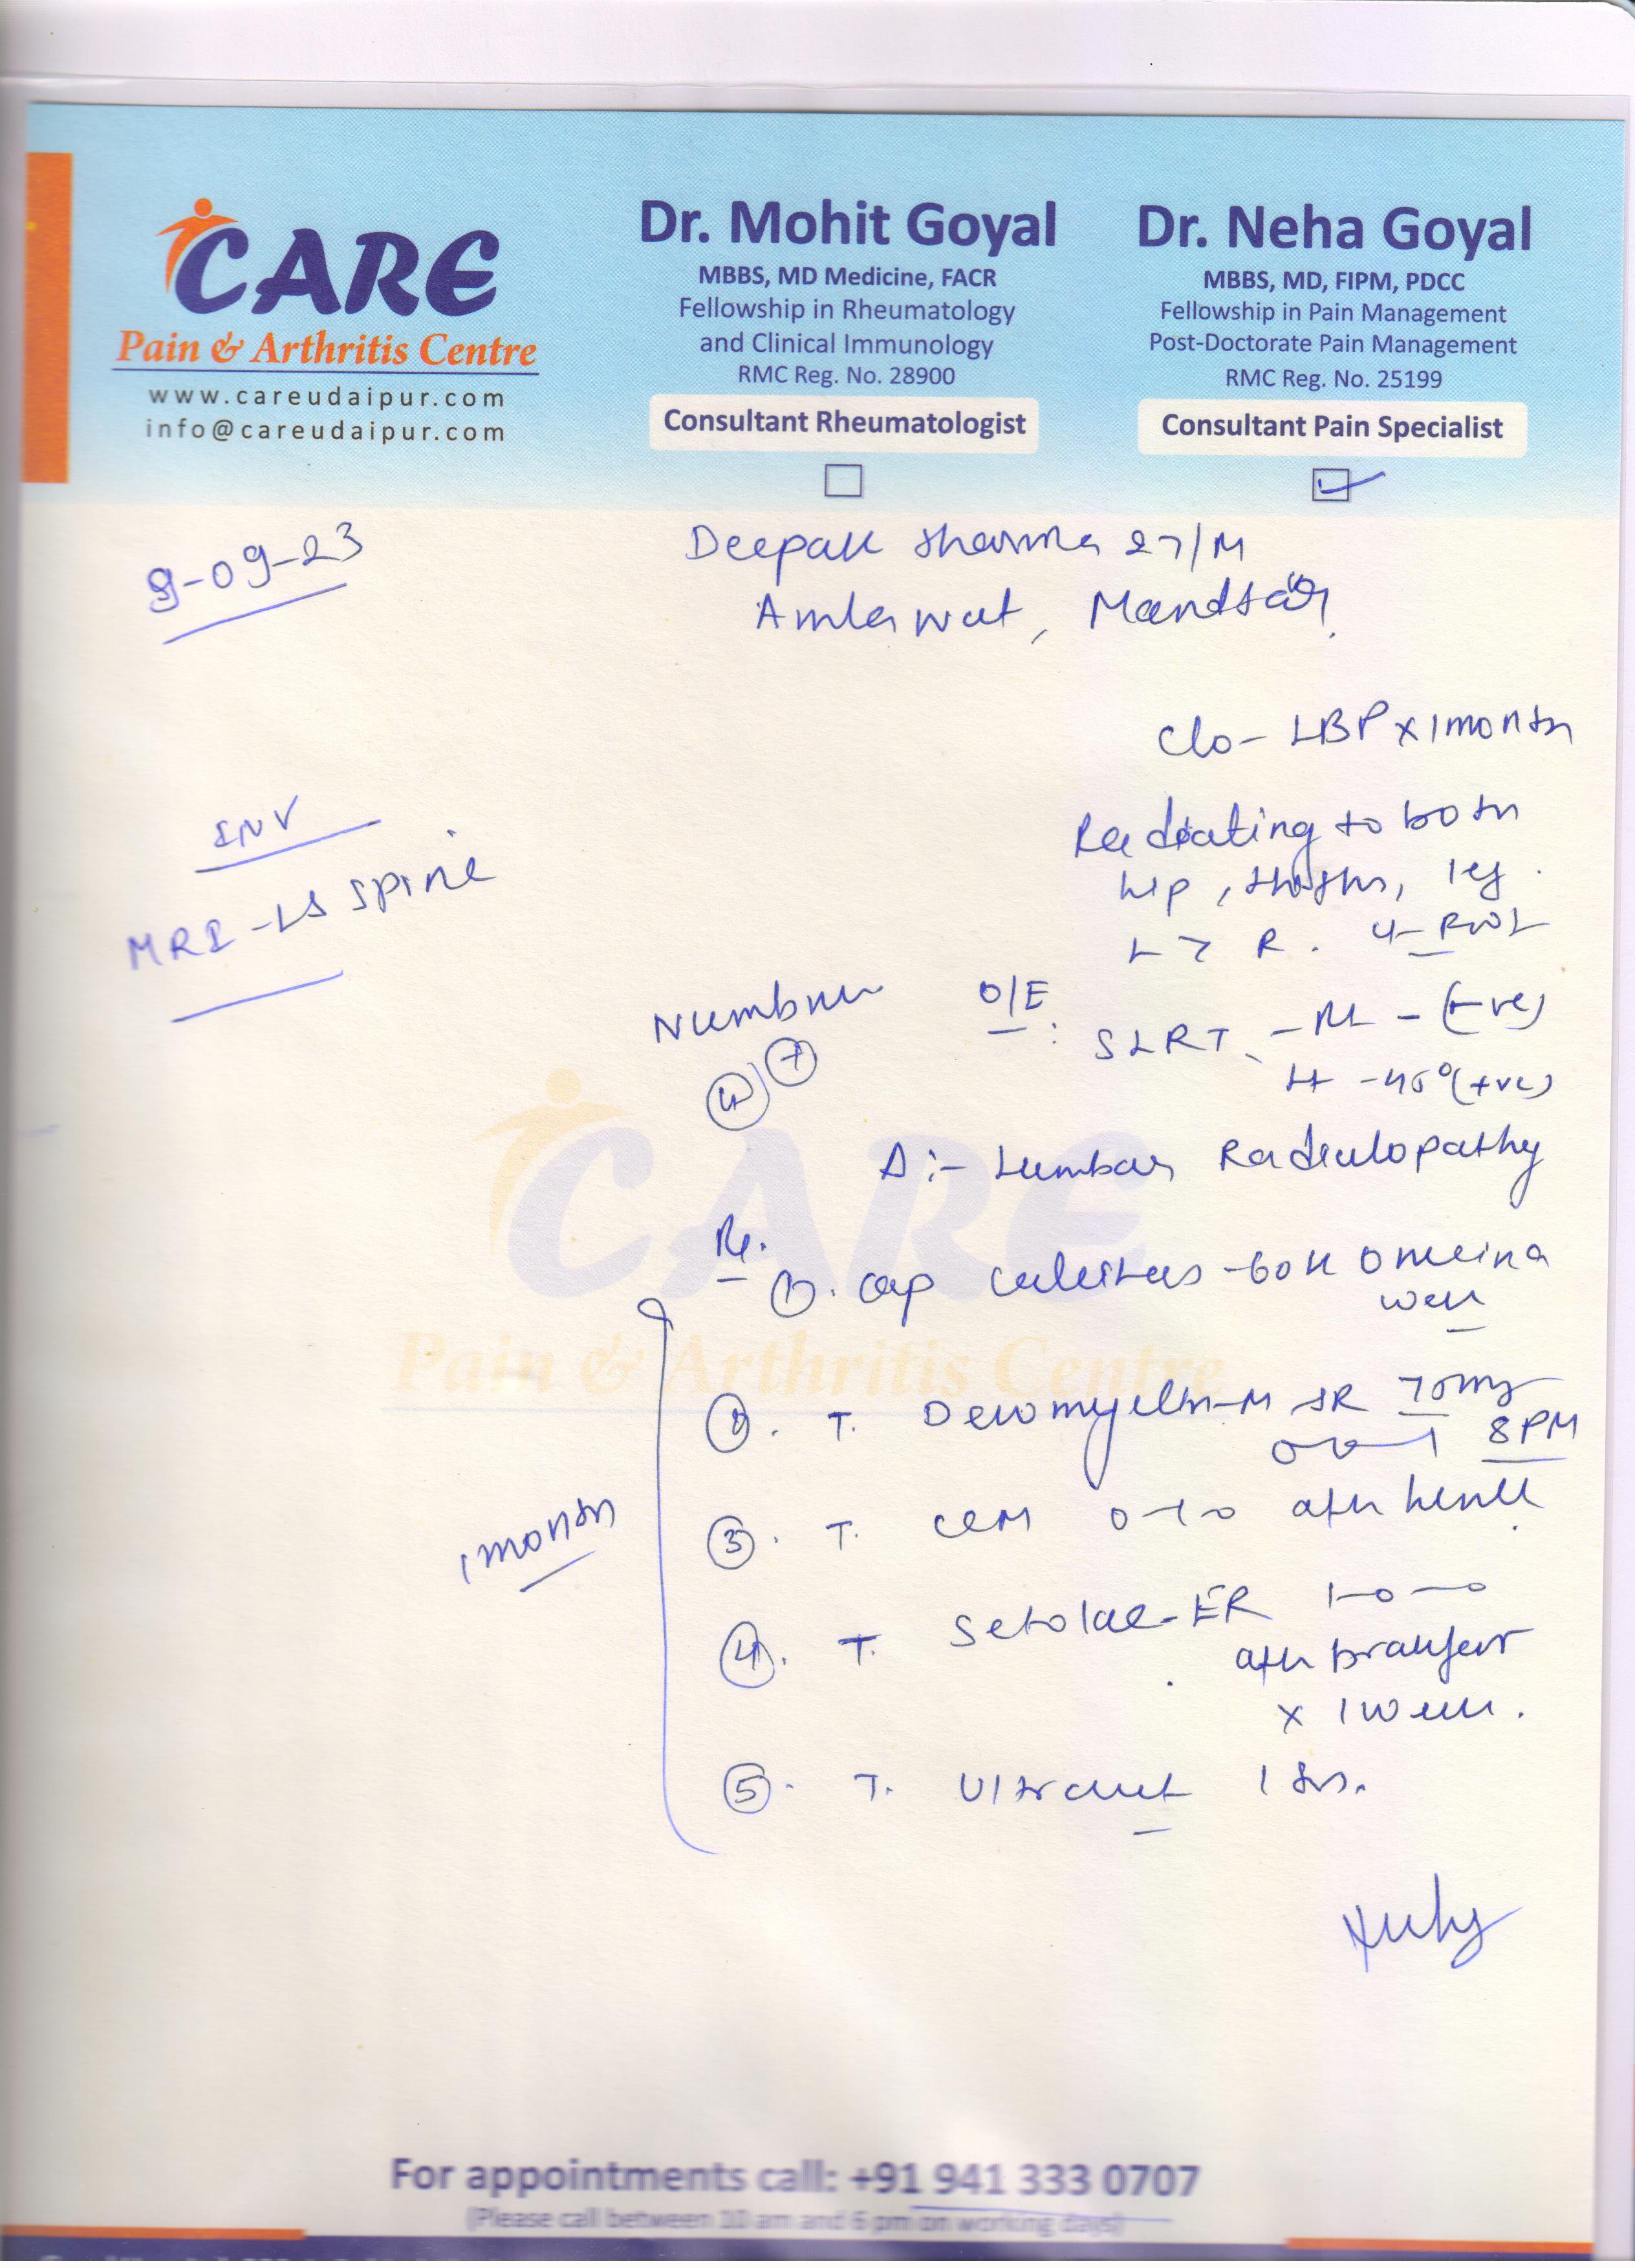 CARE
Pain & Arthritis Centre
www.careudaipur.com
info@careudaipur.com
Dr. Mohit Goyal
MBBS, MD Medicine, FACR
Fellowship in Rheumatology
and Clinical Immunology
RMC Reg. No. 28900
Consultant Rheumatologist
Dr. Neha Goyal
MBBS, MD, FIPM, PDCC
Fellowship in Pain Management
Post-Doctorate Pain Management
RMC Reg. No. 25199
Consultant Pain Specialist
9-09-23
Deepak Sharma 27/M
Amlawat, Mandsaur
C/o- LBP x 1 month
Radiating to both
hip, thighs, leg.
L > R.
INV
MRI - LS Spine
Numbness
O/E :
SLRT
Lt - 45° (+ve)
Δ :- Lumbar Radiculopathy
Rx.
1. cap -60K Once in a
week
2. T. -M SR 75mg
0-0-1 8PM
3. T. CCM 0-1-0 after lunch
4. T. -ER 1-0-0
after breakfast
x 1 week.
5. T. Ultracet 1 SOS.
1 month
CARE
Pain & Arthritis Centre
For appointments call: +91 941 333 0707
(Please call between 10 am and 6 pm on working days)